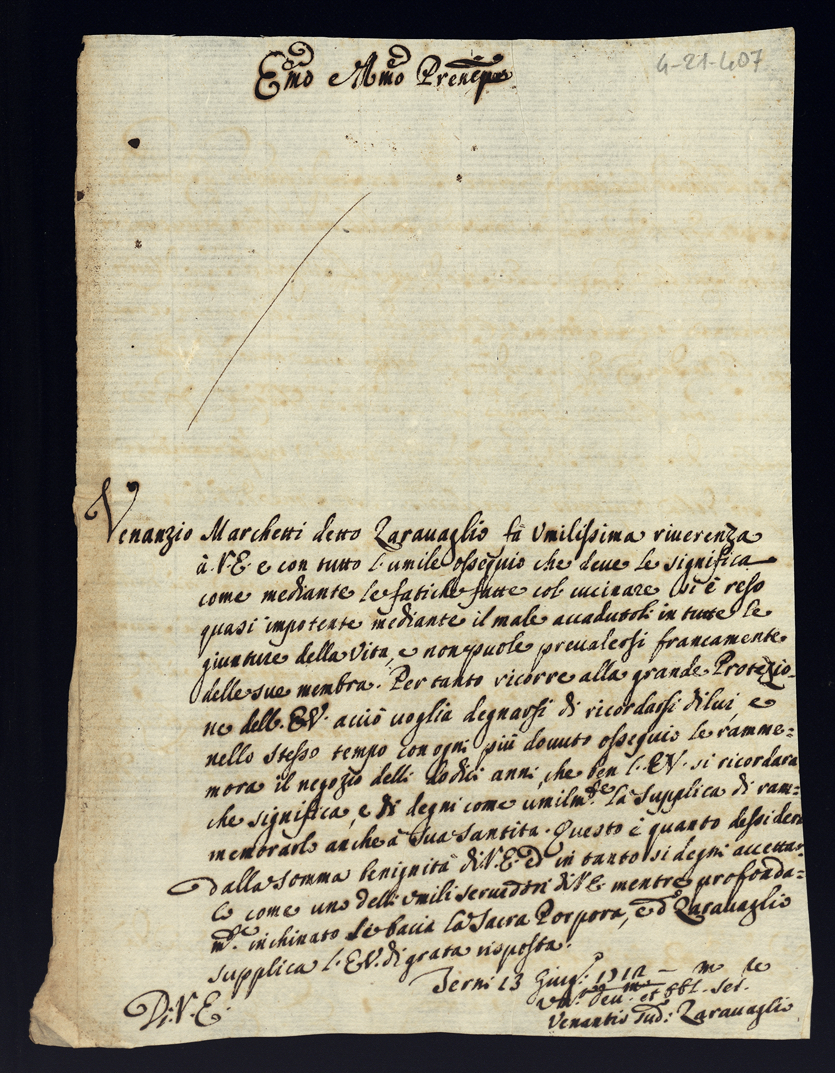 4-21-407
Emo e Rmo Prencipe
Venanzio Marchetti detto Zaravaglio fà Umilissima riverenza
à V.E. e con tutto l'umile ossequio che deve le significa
come mediante le fatiche fatte col cucinare si è reso
quasi impotente mediante il male accadutoli in tutte le
giunture della Vita, e non puole prevalersi francamente
delle sue membra. Per tanto ricorre alla grande Protezio-
ne dell'E.V. acciò voglia degnarsi di ricordarsi di lui, e
nello stesso tempo con ogni più dovuto ossequio le ramme=
mora il negozio delli dodici anni, che ben l'E.V. si ricordarà
che significa, e si degni come umilmte la supplica di ram=
memorarlo anche à Sua Santità. Questo è quanto dessidera
dalla somma benignità di V.E. ed in tanto si degni accettar
lo come uno delli umili servedori di V.E. mentre profonda=
mte inchinato le bacia la Sacra Porpora, e d Zaravaglio
supplica l'E.V. di grata risposta.
Terni 13 Giugo 1712
Di V. E.
Umo Devmo et obblmo Sere
Venantio Sudo: Zaravaglio